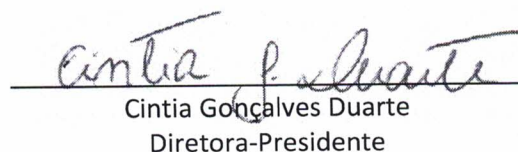 Cintia G. Duarte
Cintia Gonçalves Duarte
Diretora-Presidente